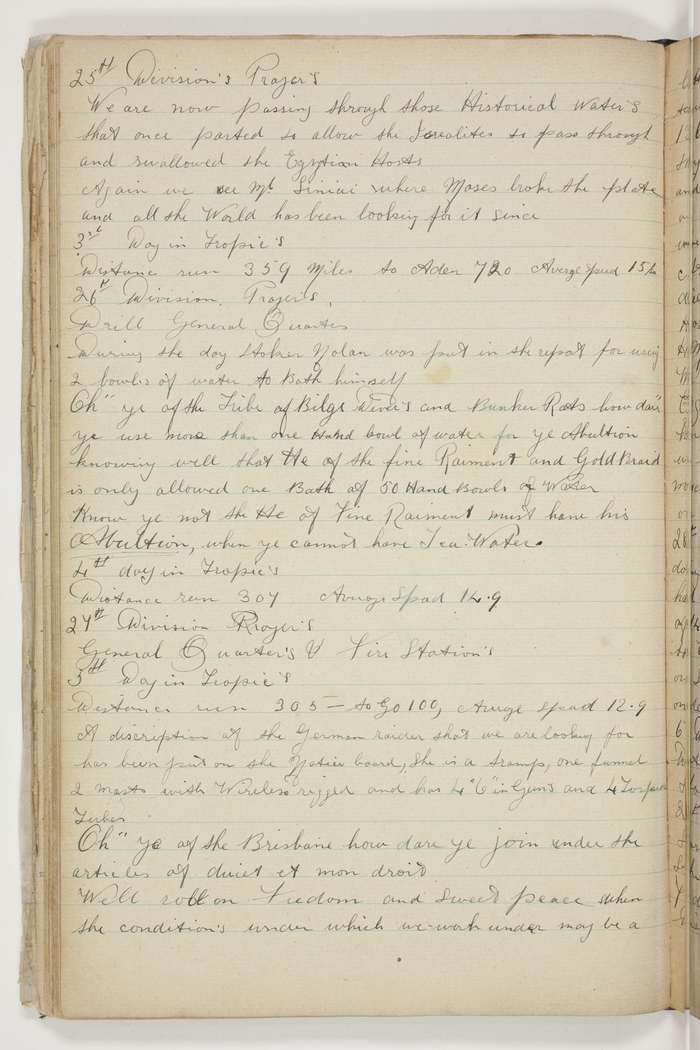 25th Division's Prayer's
We are now passing through those Historical Water's
that once parted to allow the Isrealites to pass through
and swallowed the Egytian Hosts
Again we see Mt Siniai where Moses broke the plate
and all the World has been looking for it since
3rd Day in Tropic's
Distane run 359 Miles to Aden 720 Averge speed 15
26th Division. Prayer's,
Drill General Quarter
During the day Stoker Nolan was put in the repot for using
2 bowls of water to Bath himself
Oh" ye of the Tribe of Bilge Diver's and Bunker Rats how dare
ye use more than one Hand bowl of water for ye Abultion
knowing well that He of the fine Raiment and Gold Braid
is only allowed one Bath of 50 Hand Bowls of Water
Know ye not the He of Fine Raiment must have his
Abultion, when ye cannot have Tea Water.
4th day in Tropic's
Distance run 307 Averge Spead 14.9
27th Division Prayer's
General Quarter's & Fire Station's
5th Day in Tropic's
Distance run 305 — to Go 100, Averge Spead 12.9
A discription of the German raider that we are looking for
has been put on the Notice board, She is a tramp, one funnel
2 masts with Wireless rigged and has 4 "6" in Guns and 4 Torpedo
Tubes
Oh" ye of the Brisbane how dare ye join under the
articles of duiet et mon droit
Well roll on Freedom and Sweet peace when
the condition's under which we work under may be a